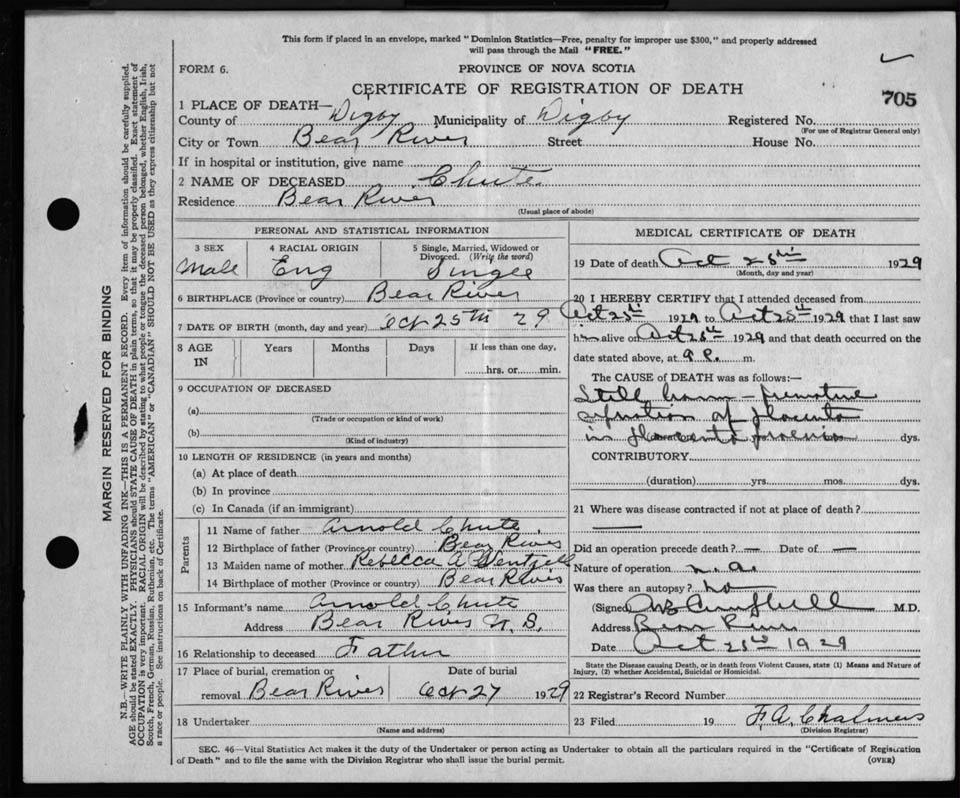 This form if placed in an envelope, marked "Dominion Statistics—Free, penalty for improper use $300," and properly addressed
will pass through the Mail "FREE."
FORM 6.
PROVINCE OF NOVA SCOTIA
CERTIFICATE OF REGISTRATION OF DEATH
705
1 PLACE OF DEATH—
County of Digby Municipality of Digby Registered No.
(For use of Registrar General only)
City or Town Bear River Street House No.
If in hospital or institution, give name
2 NAME OF DECEASED Chute
Residence Bear River
(Usual place of abode)
PERSONAL AND STATISTICAL INFORMATION
3 SEX 4 RACIAL ORIGIN 5 Single, Married, Widowed or
Divorced. (Write the word)
Male Eng Single
6 BIRTHPLACE (Province or country) Bear River
7 DATE OF BIRTH (month, day and year) Oct 25th 29
8 AGE Years Months Days If less than one day,
IN hrs. or min.
9 OCCUPATION OF DECEASED
(a)
(Trade or occupation or kind of work)
(b)
(Kind of industry)
10 LENGTH OF RESIDENCE (in years and months)
(a) At place of death
(b) In province
(c) In Canada (if an immigrant)
Parents
11 Name of father Arnold Chute
12 Birthplace of father (Province or country) Bear River
13 Maiden name of mother Rebecca A
14 Birthplace of mother (Province or country) Bear River
15 Informant's name Arnold Chute
Address Bear River N.S.
16 Relationship to deceased Father
17 Place of burial, cremation or Date of burial
removal Bear River Oct 27 1929
18 Undertaker
(Name and address)
MEDICAL CERTIFICATE OF DEATH
19 Date of death Oct 25th 1929
(Month, day and year)
20 I HEREBY CERTIFY that I attended deceased from
Oct 25th 1929 to Oct 25th 1929 that I last saw
him alive on Oct 25th 1929 and that death occurred on the
date stated above, at 9 P. m.
The CAUSE OF DEATH was as follows:—
Still born – premature
separation of placenta
in placenta praevia dys.
CONTRIBUTORY
(duration) yrs. mos. dys.
21 Where was disease contracted if not at place of death?
Did an operation precede death? — Date of —
Nature of operation n.a.
Was there an autopsy? no
(Signed) Campbell M.D.
Address Bear River
Date Oct 25 1929
State the Disease causing Death, or in death from Violent Causes, state (1) Means and Nature of
Injury, (2) whether Accidental, Suicidal or Homicidal.
22 Registrar's Record Number
23 Filed 19 F. A. Chalmers
(Division Registrar)
SEC. 46—Vital Statistics Act makes it the duty of the Undertaker or person acting as Undertaker to obtain all the particulars required in the "Certificate of Registration
of Death" and to file the same with the Division Registrar who shall issue the burial permit.
(OVER)
MARGIN RESERVED FOR BINDING
N.B.—WRITE PLAINLY WITH UNFADING INK—THIS IS A PERMANENT RECORD. Every item of information should be carefully supplied.
AGE should be stated EXACTLY. PHYSICIANS should STATE CAUSE OF DEATH in plain terms, so that it may be properly classified. Exact statement of
OCCUPATION is very important. RACIAL ORIGIN will be described by stating to what people or tongue the deceased person belonged, whether English, Irish,
Scotch, French, German, Russian, Ruthenian, etc. The terms "AMERICAN" or "CANADIAN" SHOULD NOT BE USED as they express citizenship but not
a race or people. See instructions on back of Certificate.